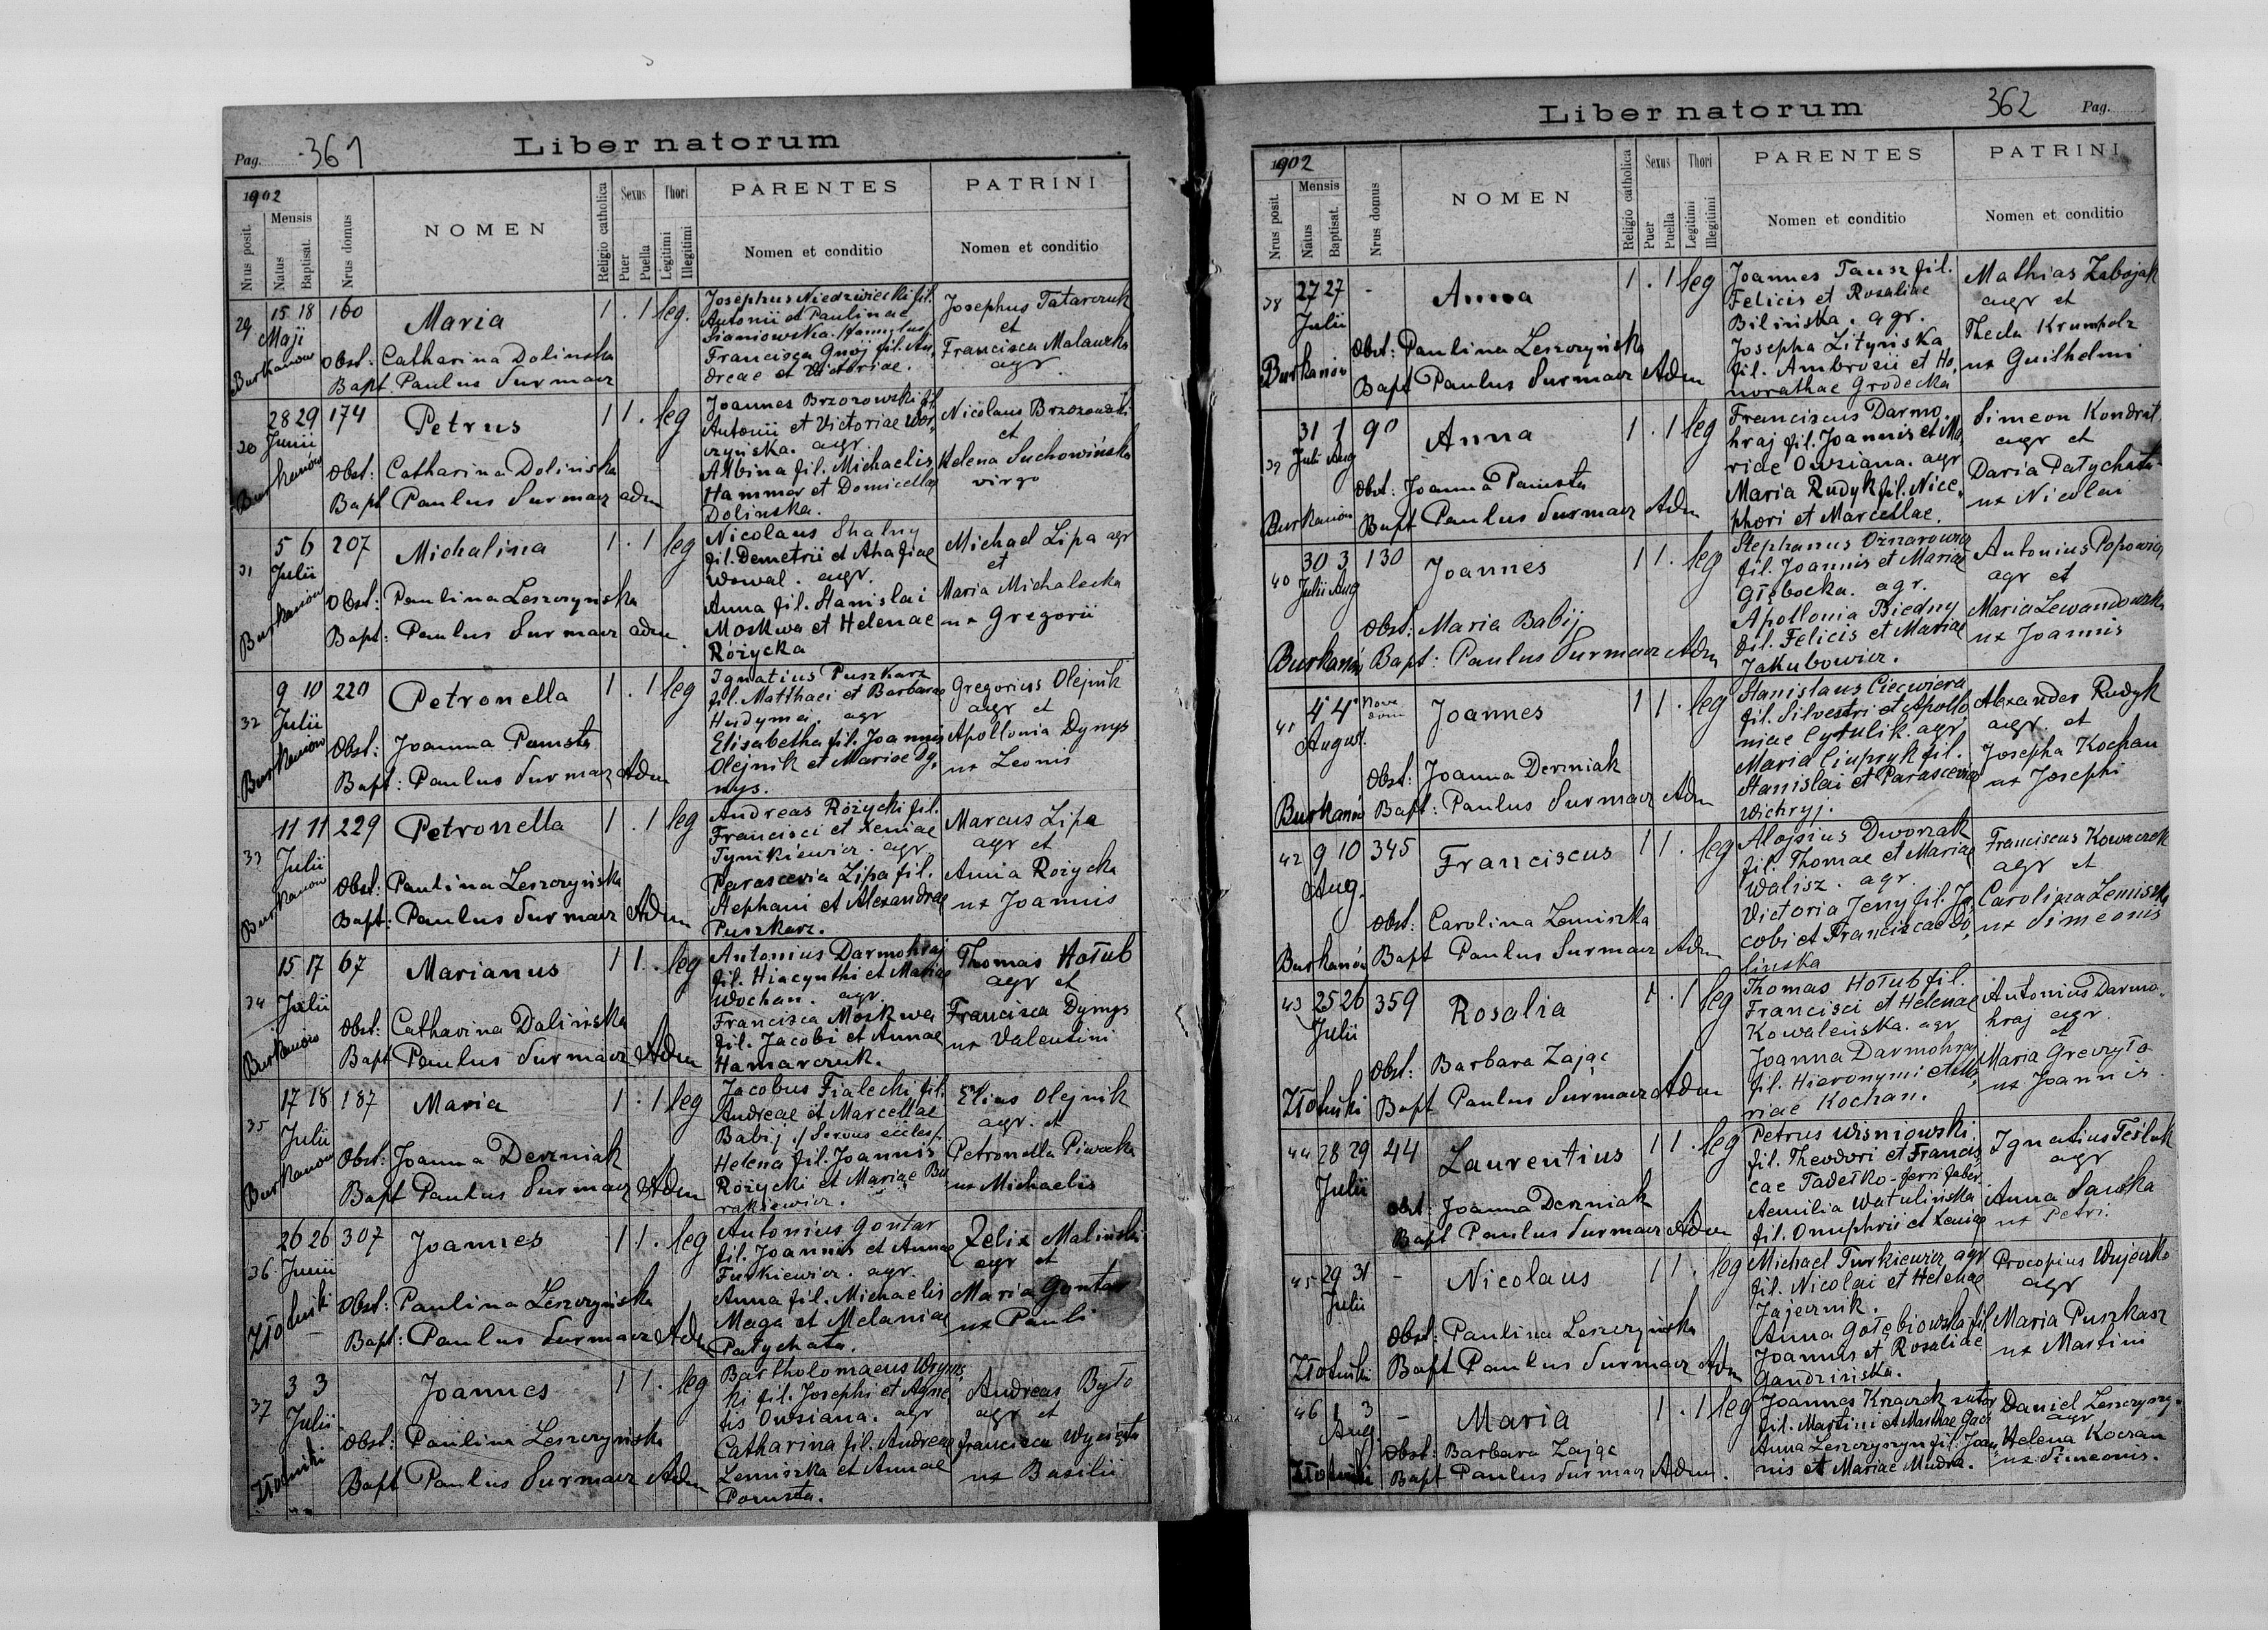 Pag. 361
Liber natorum
1902
Nrus posit.
Mensis
Natus
Baptisat.
Nrus domus
NOMEN
Religio catholica
Sexus
Puer
Puella
Thori
Legitimi
Illegitimi
PARENTES
Nomen et conditio
PATRINI
Nomen et conditio
29 15 18 160 Maria 1 . 1 leg.
Maji
Burkanow
Obst: Catharina Dolinska
Bapt Paulus Surmacz
Josephus Niedzwiecki fil.
Antonii et Paulinae
Francisca Gnoj fil. An,
dreae et Victoriae.
Josephus Tatarczuk
et
Francisca Malawska
agr.
30 28 29 174 Petrus 1 1 . leg
Junii
Burkanów
Obst: Catharina Dolinska
Bapt Paulus Surmacz adm
Joannes Brzozowski fil
Antonii et Victoriae Wor,
czyńska. agr.
Albina fil. Michaelis
Hammer et Domicellae
Dolinska.
Nicolaus Brzozowski
et
Helena Suchowińska
virgo
31 5 6 207 Michalina 1 . 1 leg
Julii
Burkanow
Obst: Paulina Leszczynska
Bapt: Paulus Surmacz adm
Nicolaus Shalny
fil. Demetrii et Ahafiae
Wowal. agr.
Anna fil. Stanislai
Moskwa et Helenae
Różycka
Michael Lipa agr
et
Maria Michalecka
ux Gregorii
32 9 10 220 Petronella 1 . 1 leg
Julii
Burkanow
Obst: Joanna Pamsta
Bapt: Paulus Surmacz Adm
Ignatius Puszkarz
fil. Matthaei et Barbarae
Hudyma. agr
Elisabetha fil. Joannis
Olejnik et Mariae Dy,
mys.
Gregorius Olejnik
agr et
Apollonia Dymys
ux Leonis
33 11 11 229 Petronella 1 . 1 leg
Julii
Burkanow
Obst: Paulina Leszczyńska
Bapt: Paulus Surmacz Adm
Andreas Różycki fil.
Francisci et Xeniae
Tynikiewicz. agr
Parascevia Lipa fil.
Stephani et Alexandrae
Puszkarz.
Marcus Lipa
agr et
Anna Rozycka
ux Joannis
34 15 17 67 Marianus 1 1 . leg
Julii
Burkanow
Obst: Catharina Dalińska
Bapt Paulus Surmacz Adm
Antonius Darmohraj
fil. Hiacynthi et Mariae
Wochan. agr.
Francisca Moskwa
fil. Jacobi et Annae
Hamarczuk.
Thomas Hołub
agr et
Francisca Dymys
ux Valentini
35 17 18 187 Maria 1 . 1 leg
Julii
Burkanow
Obst: Joanna Derzniak
Bapt Paulus Surmacz Adm
Jacobus Fialecki fil.
Andreae et Marcellae
Babij. /Servus eccles/.
Helena fil. Joannis
Różycki et Mariae Bu
rakiewicz.
Elias Olejnik
agr. et
Petronella Piwacka
ux Michaelis
36 26 26 307 Joannes 1 1 . leg
Junii
Złotniki
Obst: Paulina Leszczyńska
Bapt: Paulus Surmacz Adm
Antonius Gontar
fil. Joannis et Annae
Furkiewicz. agr.
Anna fil. Michaelis
Maga et Melaniae
Patychata.
Felix Malinski
agr et
Maria Gontar
ux Pauli
37 3 3 Joannes 1 1 . leg
Julii
Złotniki
Obst: Paulina Leszczynska
Bapt Paulus Surmacz Adm
Bartholomaeus
ki fil. Josephi et Agne
tis Owsiana. agr
Catharina fil. Andreae
Lemiszka et Annae
Pamsta.
Andreas Było
agr et
Francisca
ux Basilii
Liber natorum
362 Pag.
1902
Nrus posit.
Mensis
Natus
Baptisat.
Nrus domus
NOMEN
Religio catholica
Sexus
Puer
Puella
Thori
Legitimi
Illegitimi
PARENTES
Nomen et conditio
PATRINI
Nomen et conditio
38 27 27 - Anna 1 . 1 leg
Julii
Burkanów
Obst: Paulina Leszczyńska
Bapt Paulus Surmacz Adm
Joannes Tausz fil.
Felicis et Rosaliae
Bilińska. agr.
Josepha Lityńska
fil. Ambrosii et Ho,
norathae Grodecka
Mathias Zabojak
agr et
Thecla Krumholz
ux Guilhelmi
39 31 1 90 Anna 1 . 1 leg
Julii Aug
Burkanow
Obst: Joanna Pamsta
Bapt Paulus Surmacz Adm
Franciscus Darmo,
hraj fil. Joannis et Ma,
riae Owsiana. agr
Maria Rudyk fil. Nice,
phori et Marcellae.
Simeon Kondrat
agr et
Daria Patychata
ux Nicolai
40 30 3 130 Joannes 1 1 . leg
Julii Aug
Burkanów
Obst: Maria Babij
Bapt: Paulus Surmacz Adm
Stephanus Ożarowicz
fil. Joannis et Mariae
Głębocka. agr.
Apollonia Biedny
fil. Felicis et Mariae
Jakubowicz.
Antonius Popowicz
agr et
Maria Lewandowska
ux Joannis
41 4 4 Nova dom Joannes 1 1 . leg
August.
Burkanów
Obst: Joanna Derzniak
Bapt: Paulus Surmacz Adm
Stanislaus Ciecwiera
fil. Silvestri et Apollo,
niae Cytulik. agr
Maria Ciupryk fil.
Stanislai et Parasceviae
Wichryj.
Alexander Rudyk
agr. et
Josepha Kochan
ux Josephi
42 9 10 345 Franciscus 1 1 . leg
Aug.
Burkanów
Obst: Carolina Lemiszka
Bapt Paulus Surmacz Adm
Alojsius Dworzak
fil. Thomae et Mariae
Walisz. agr.
Victoria Jeny fil. Ja,
cobi et Franciscae Do,
linska
Franciscus Kowaczek
agr et
Carolina Lemiszka
ux Simeonis
43 25 26 359 Rosalia 1 . 1 leg
Julii
Złotniki
Obst: Barbara Zając
Bapt Paulus Surmacz Adm
Thomas Hołub fil.
Francisci et Helenae
Kowalenska. agr
Joanna Darmohraj
fil. Hieronymi et Ma,
riae Kochan.
Antonius Darmo,
hraj agr.
et
Maria Greczyło
ux Joannis
44 28 29 44 Laurentius 1 1 . leg
Julii
Obst. Joanna Derzniak
Bapt Paulus Surmacz Adm
Petrus Wisniowski
fil. Theodori et Francis,
cae Tadeřko - ferri faber.
Aemilia Watulińska
fil. Onuphrii et Xeniae
Ignatius Teśluk
agr
Anna Sawka
ux Petri.
45 29 31 - Nicolaus 1 1 . leg
Julii
Złotniki
Obst: Paulina Leszczyńska
Bapt Paulus Surmacz Adm
Michael Turkiewicz agr
fil. Nicolai et Helenae
Jajecznik.
Anna Gołębiowska fil
Joannis et Rosaliae
Gandzińska.
Procopius Wujcicko
agr
Maria Puszkasz
ux Martini
46 1 3 - Maria 1 . 1 leg
Aug.
Złotniki
Obst: Barbara Zając
Bapt Paulus Surmacz Adm.
Joannes Krawczk sutor
fil. Martini et Marthae Gać
Anna Leszczyszyn fil. Joan,
nis et Mariae Mudra.
Daniel Leszczyszy,
agr
Helena Koczan
ux Simeonis.